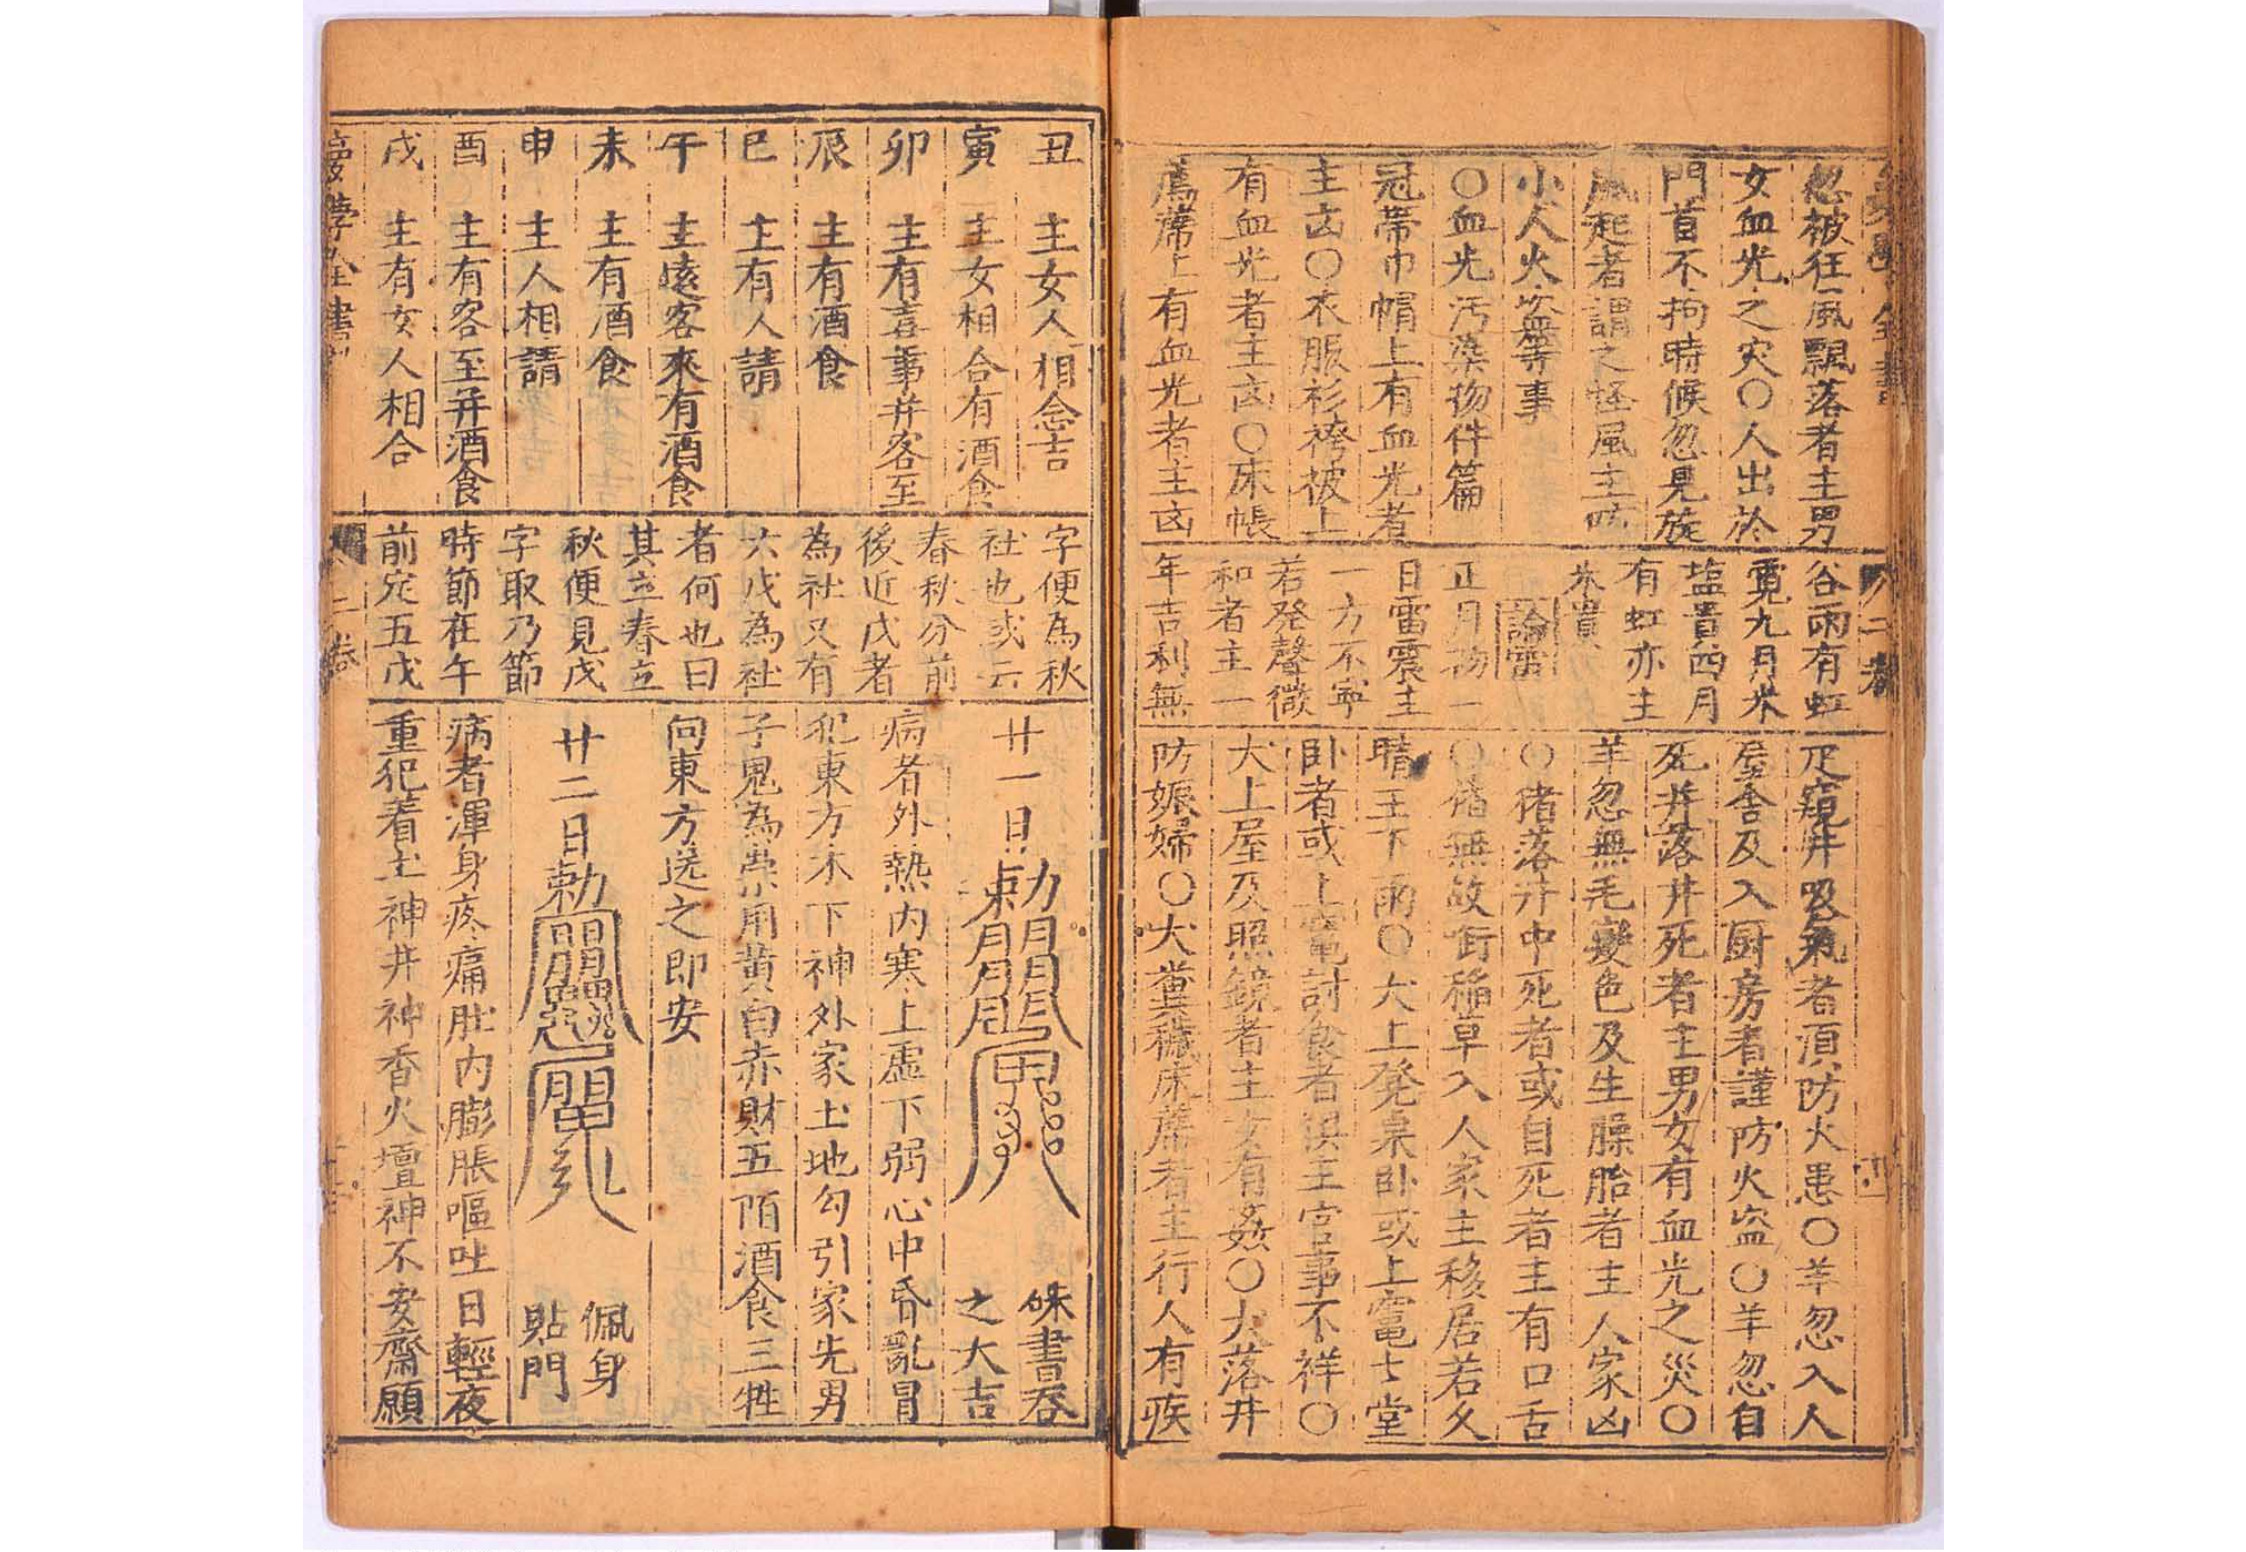 忽被狂風飄落者主男
女血光之灾〇人出於
門首不拘時候忽見旋
風起者謂之怪風主
小人火盜等事
〇血光汚染物件篇
冠帶巾帽上有血光者
主凶〇衣服衫袴被上
有血光者主凶〇床帳
薦席上有血光者主凶
谷雨有虹
霓九月米
塩貴四月
有虹亦主
米貴
論雷
正月初一
日雷震主
一方不寧
若発聲微
和者主一
年吉利無
窺井吸氣者湏防火患〇羊忽入人
屋舍及入厨房者謹防火盗〇羊忽自
死并落井死者主男女有血光之災〇
羊忽無毛變色及生臊胎者主人家凶
〇猪落井中死者或自死者主有口舌
〇猪無故衘稲草入人家主移居若久
晴主下雨〇犬上凳泉卧或上竈七堂
卧者或上竈討食者俱主官事不祥〇
犬上屋及照鏡者主女有姦〇犬落井
防娠婦〇犬糞穢床蓆者主行人有疾
二卷
丑 主女人相念吉
寅 主女相合有酒食
卯 主有喜事并客至
辰 主有酒食
巳 主有人請
午 主遠客來有酒食
未 主有酒食
申 主人相請
酉 主有客至并酒食
戌 主有女人相合
字便為秋
社也或云
春秋分前
後近戊者
為社又有
六戊為社
者何也曰
其立春立
秋便見戊
字取乃節
時節在午
前定五戊
廿一日 勅 硃書吞
之大吉
病者外熱内寒上虚下弱心中昏亂冒
犯東方木下神外家土地勾引家先男
子鬼為祟用黄白赤財五陌酒食三牲
向東方送之即安
廿二日 勅 佩身
貼門
病者渾身疼痛肚内膨脹嘔吐日輕夜
重犯着土神井神香火壇神不安齋願
學全書
二卷